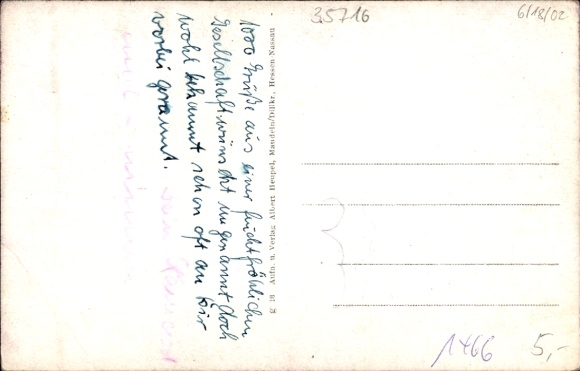 35716
6/18/02
1000 Grüße aus einer feuchtfröhlichen
Gesellschaft wünscht ungenannt doch
wohl bekannt schon oft an Dir
vorbei gerannt.
S 18 Aufn. u. Verlag Albert Hempel, Mandeln/Dillkr., Hessen Nassau
1466
5,-